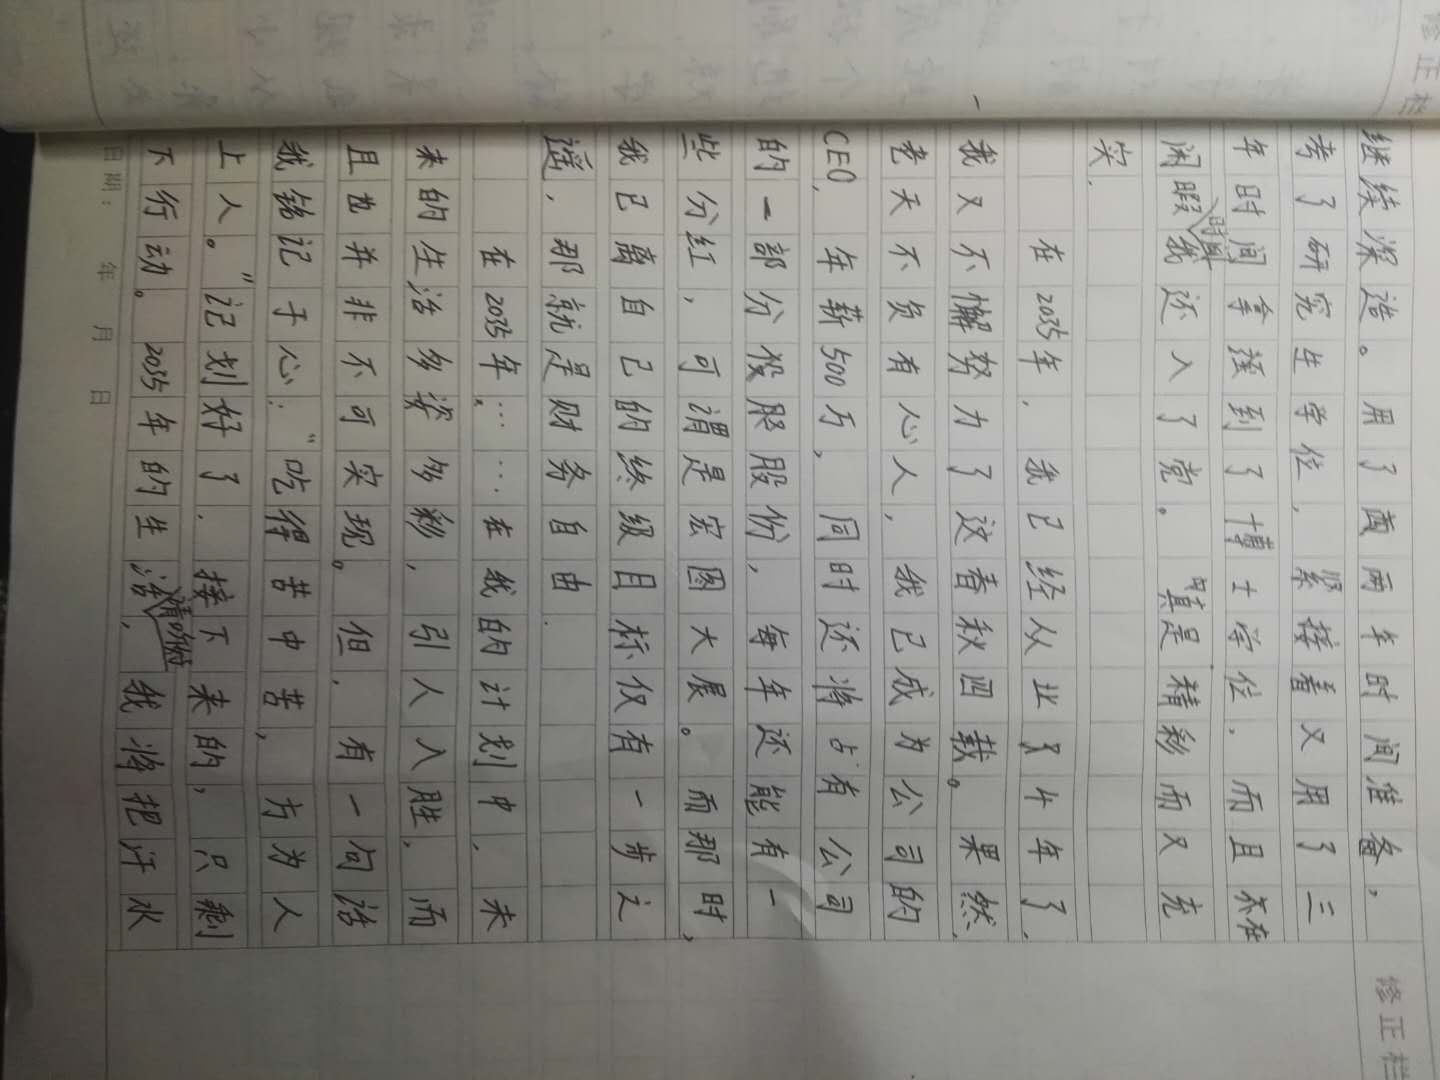 修正栏
继续深造。用了两年时间准备,
考了研究生学位,紧接着又用了三
年时间拿到了博士学位,而且在
闲暇时期我还入了党。真是精彩而又充
实.
在2035年,我已经从业4年了.
我又不懈努力了这春秋四载。果然,
老天不负有心人,我已成为公司的
CEO,年薪500万,同时还将占有公司
的一部分股份,每年还能有一
些分红,可谓是宏图大展。而那时,
我已离自己的终级目标仅有一步之
遥,那就是财务自由.
在2035年……在我的计划中,未
来的生活多姿多彩,引人入胜,而
且也并非不可实现。但,有一句话
我铭记于心:“吃得苦中苦,方为人
上人。”记划好了.接下来的,只剩
下行动。2035年的生活,请俯,我将把汗水
日期: 年 月 日
修正栏